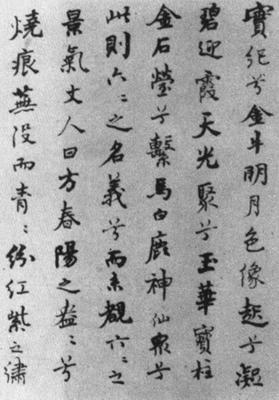 寶兮金牛明月色像起兮凝
碧迎霞天光聚兮玉華寶柱
金石瑩兮繫馬白鹿神仙眾兮
此則六〻之名義兮而未覩六〻之
景氣丈人曰方春陽之盎〻兮
燒痕蕪没而青〻紛紅紫之繡